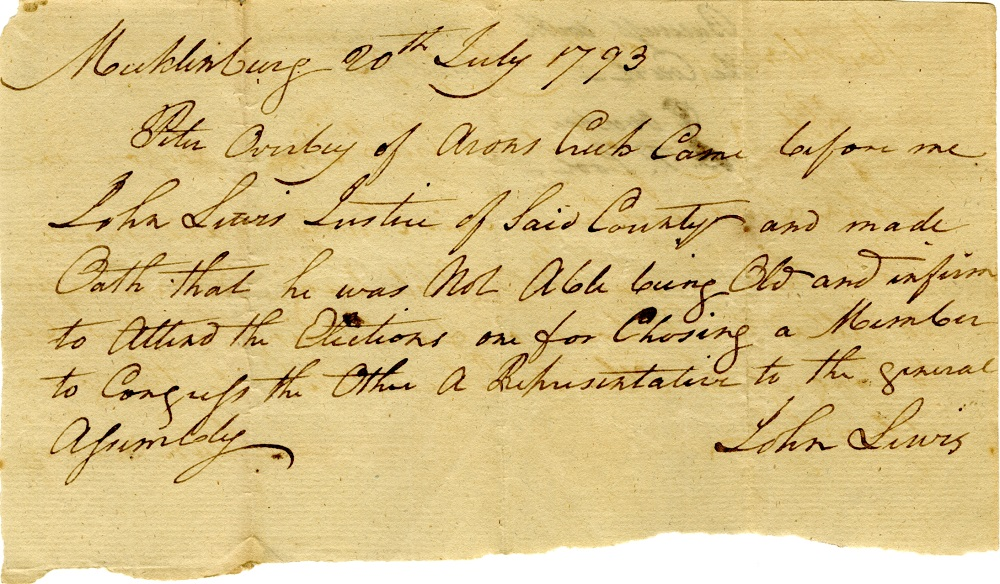 Mecklinburg 20th July 1793
Peter Overbey of Arons Creek Came before me
John Lewis Justice of Said County and made
Oath that he was Not Able being Old and infirm
to Attend the Elections one for Chosing a Member
to Congress the Other A Representative to the general
Assembly
John Lewis